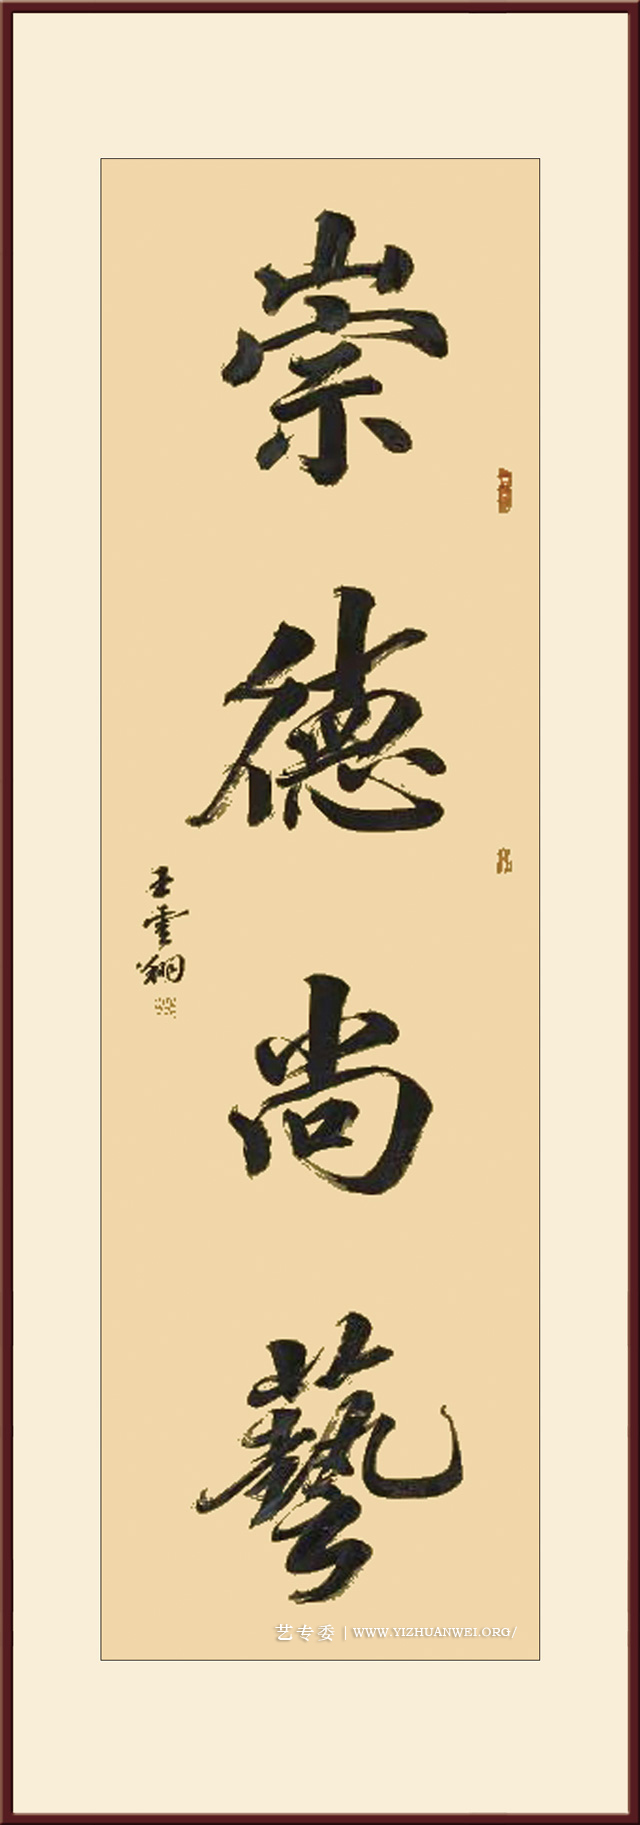 崇德尚藝
王雲翔
艺专委 | WWW.YIZHUANWEI.ORG/